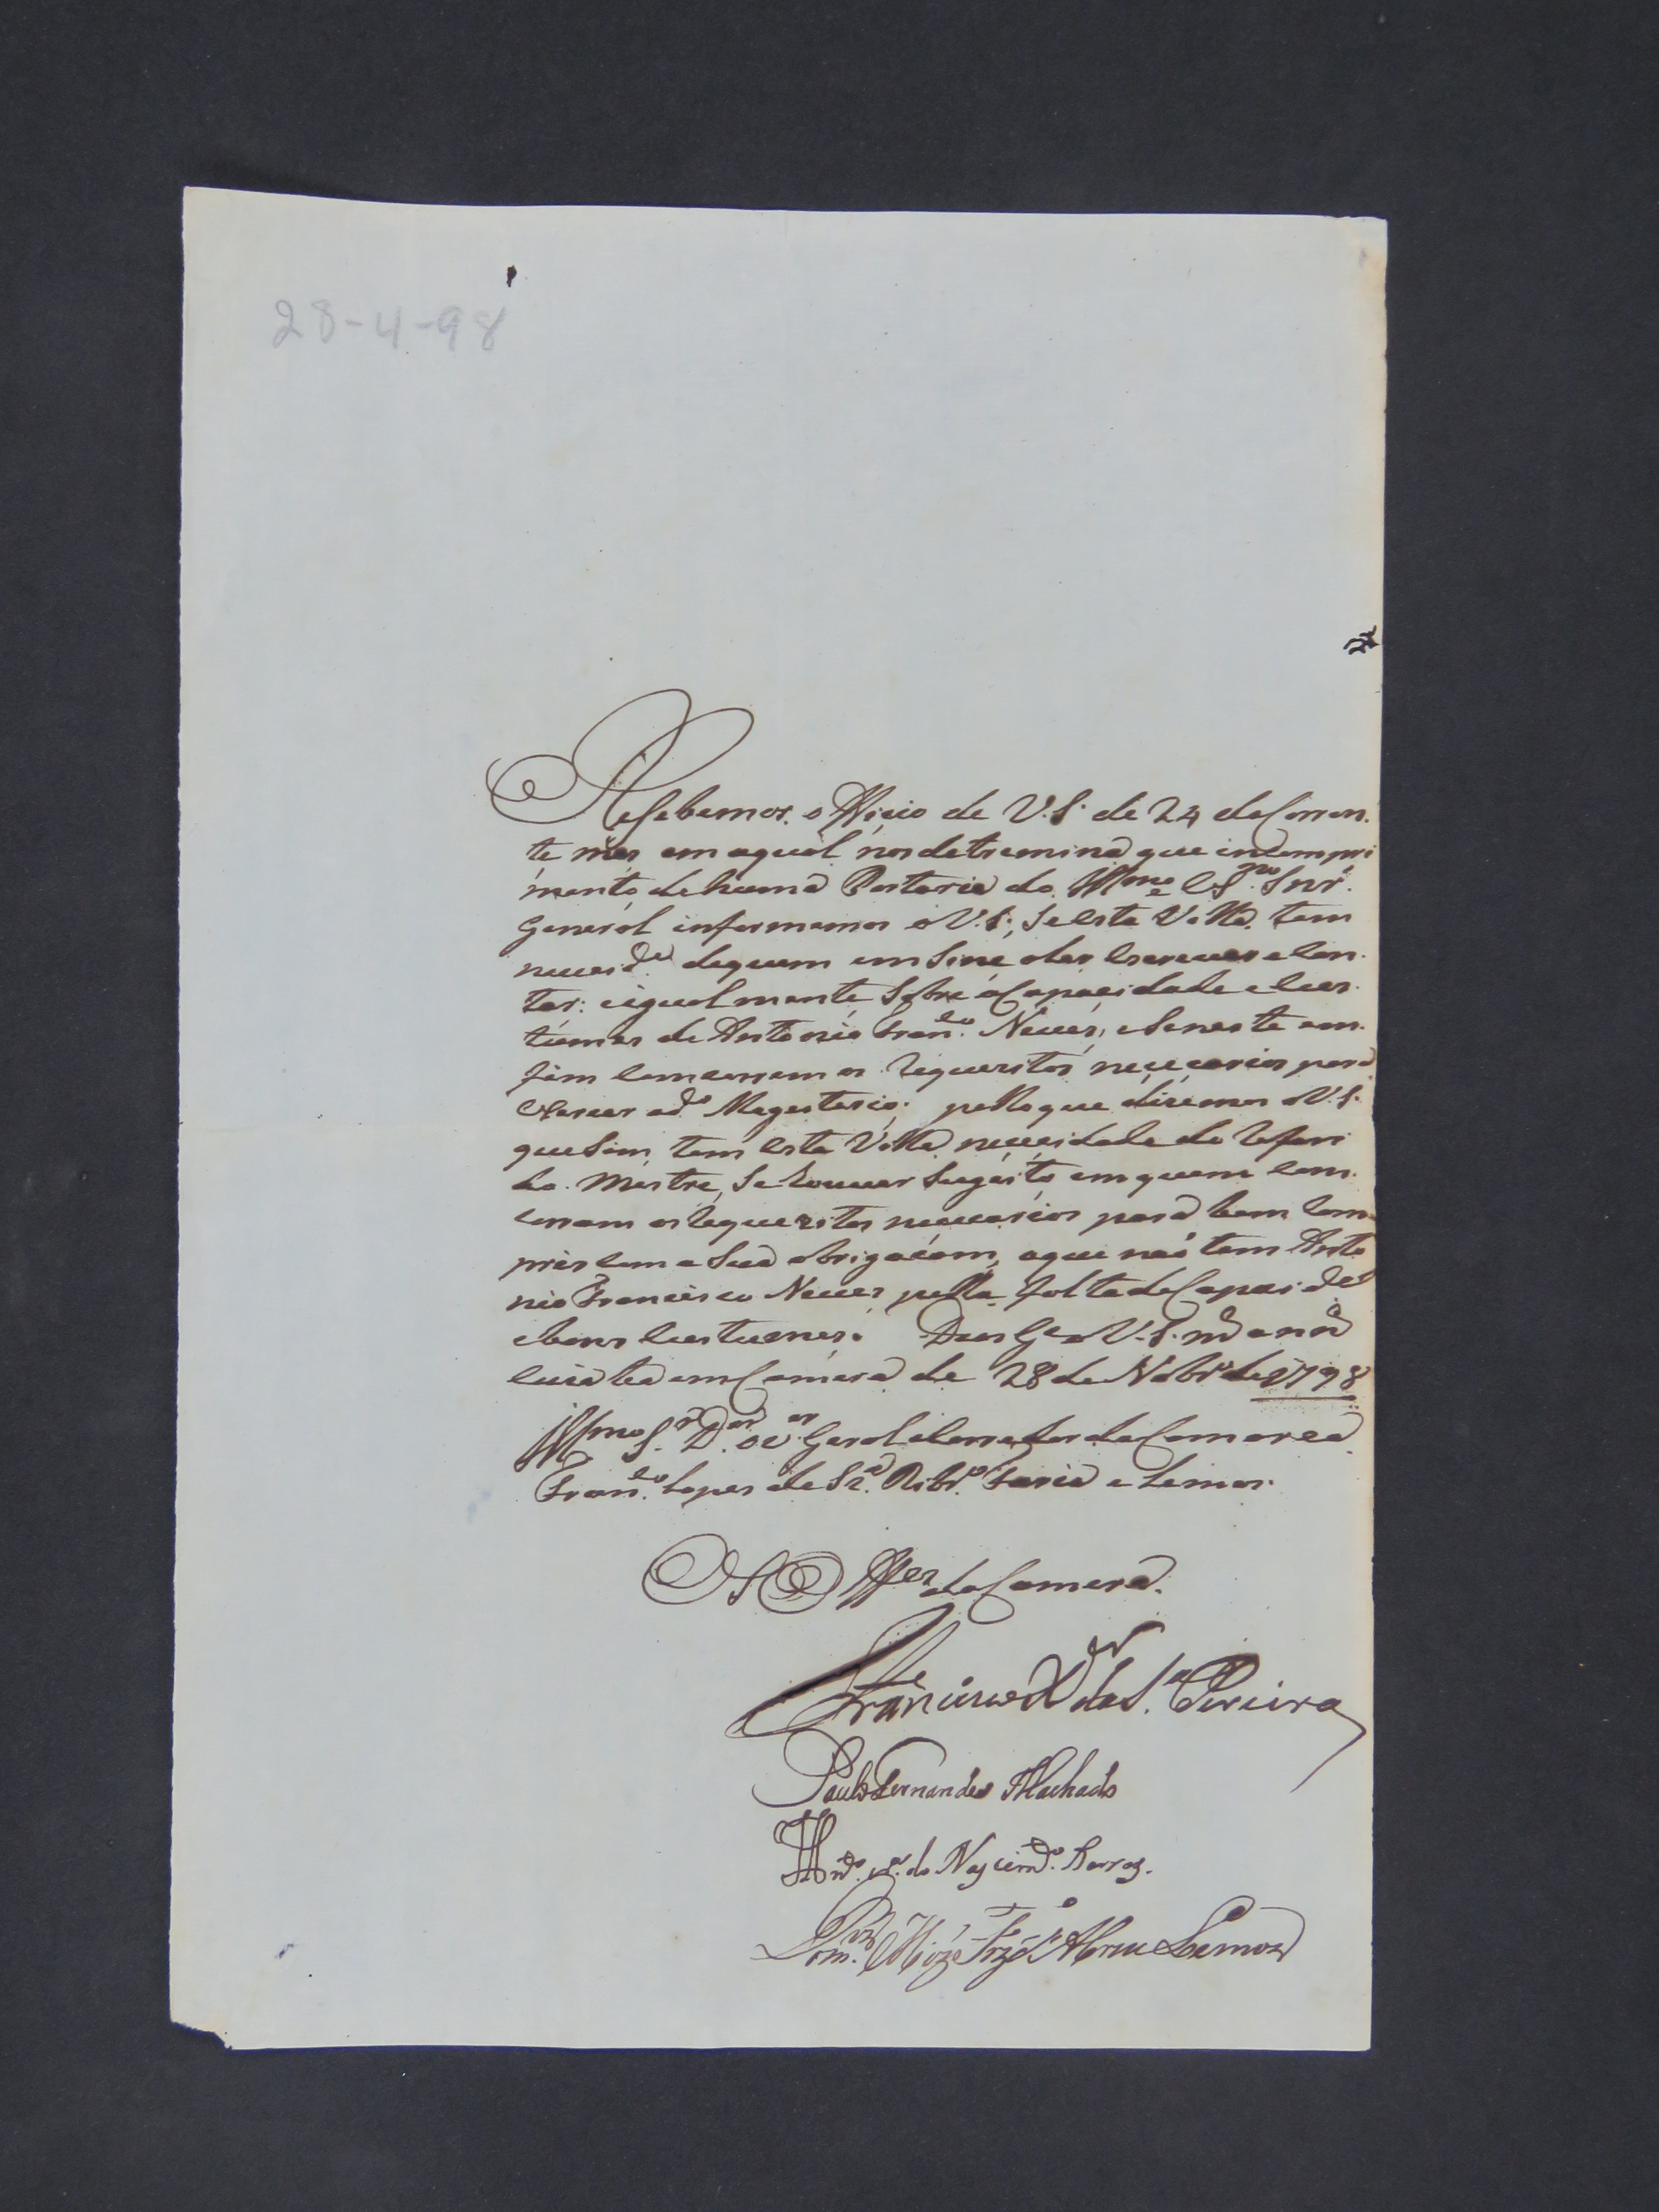 28-4-98
Resebemos o Officio de V.S. de 24 do Corren.
te mês em a qual nos detremina que em Compri
mento de huma Portaria do Illmo e Exmo Snr.
General informemos a V.S. Se esta Villa tem
neceside de quem em Sine a ler escrever e Con.
tar: e igualmente Sobre a Capacidade e Cus.
tumes de Antonio Franco Neves, e Se neste em.
fim Comcorrem os requezitos necesarios para
exercer o do Magesterio; pello que diremos a V.S.
que Sim tem esta Villa necesidade do referi
do Mestre, Se houver Sugeito em quem Com.
corram os requezitos necesarios para bem Com
prir Com a Sua obrigacam, a que naó tem Anto
nio Francisco Neves pella falta de Capacide
e bons Custumes. Deos Ge a V.S. ms ans
em Camera de 28 de Nobr de 1798
Illmo Sr Dor Ouvor Geral e Corredor da Comarca
Franco Lopes de Sza Ribro Faria e Lemos.
Os Offes da Camera.
Francisco Xer da Sa Pereira
Paulo Fernandes Machado
do Nascimdo Barros.
Jozé Abreu Lemos